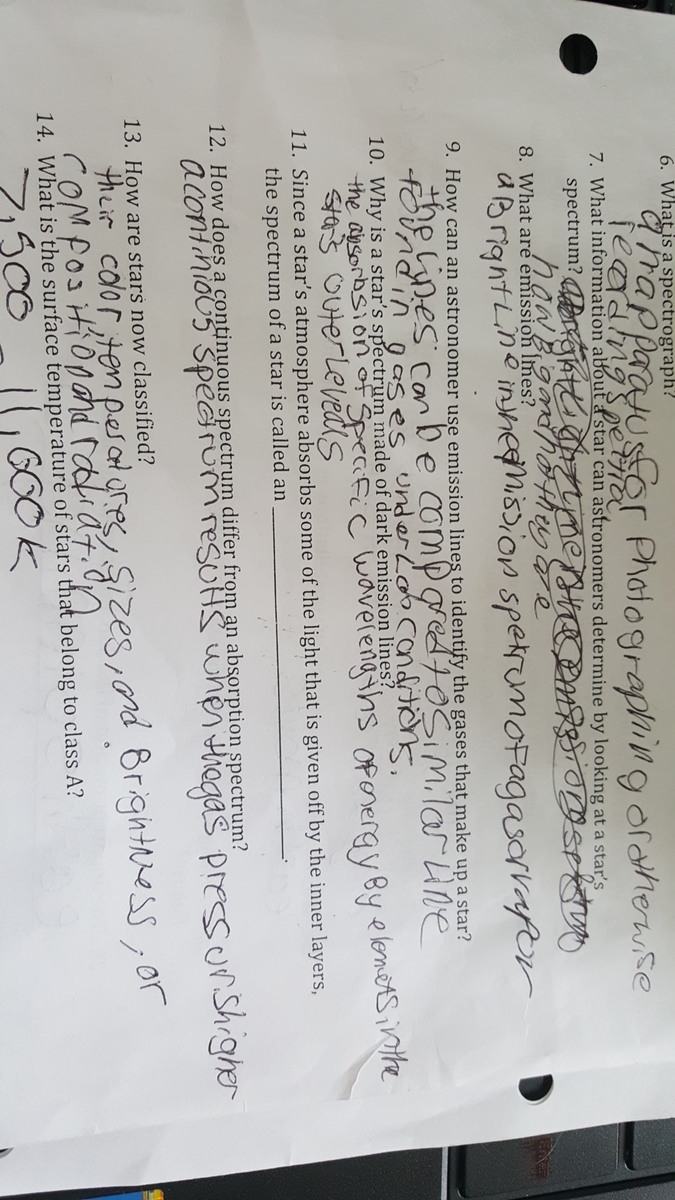 6. What is a spectrograph?
an apparatus for photographing or otherwise
recording spectra
7. What information about a star can astronomers determine by looking at a star's
spectrum?
how big and hot they are
8. What are emission lines?
a Bright Line in the emission spektrum of a gas or vapor
9. How can an astronomer use emission lines to identify the gases that make up a star?
the lines can be compared to similar Line
found in gases under Lab conditions.
10. Why is a star's spectrum made of dark emission lines?
the absorbsion of specific wavelengths of energy By elements in the
stars outer Levels
11. Since a star's atmosphere absorbs some of the light that is given off by the inner layers,
the spectrum of a star is called an ____________.
12. How does a continuous spectrum differ from an absorption spectrum?
a continious spectrum results when the gas pressur is higher
13. How are stars now classified?
their color, temperatures, sizes, and Brightness, or
composition and radiation
14. What is the surface temperature of stars that belong to class A?
7,500 - 11,000 k